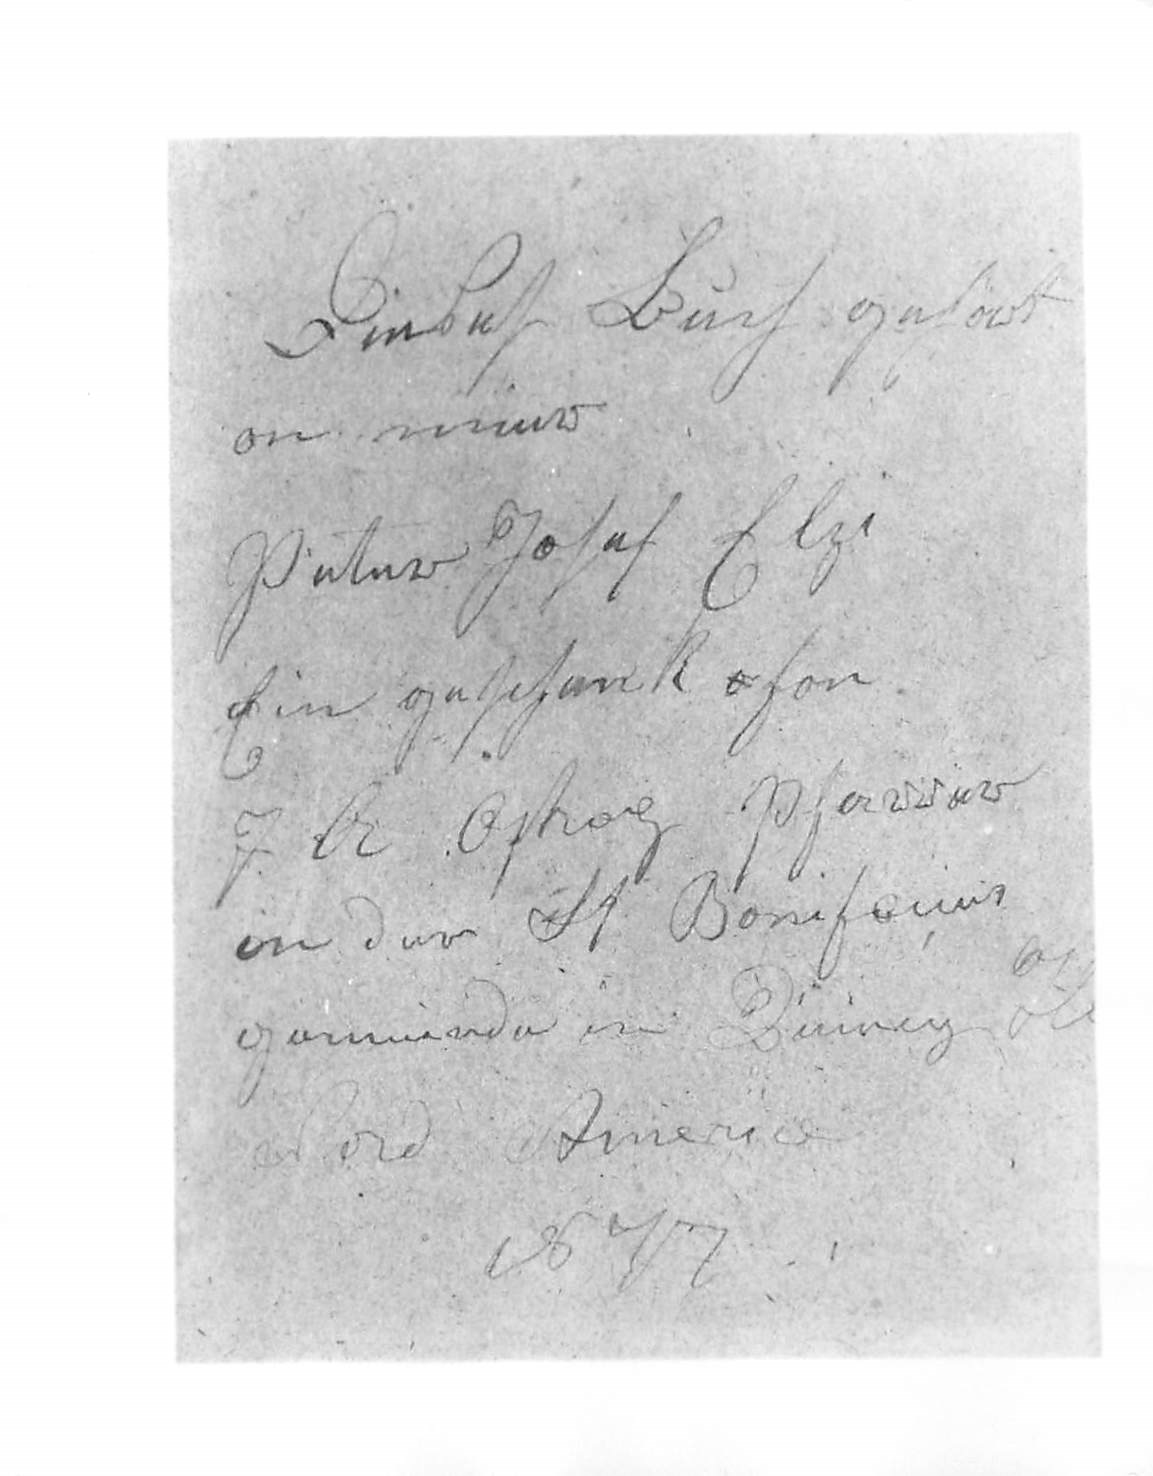 Dieses Buch gehört
an meiner
Peter Josef Elzi
Ein geschenk fon
J A Ostrog Pfarrer
in der St Bonifacius
gemeinde in Quincy
Nord America
1877